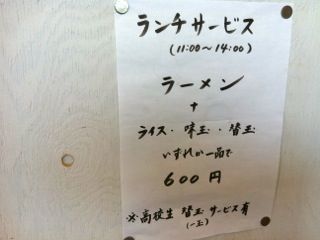 ランチサービス
(11:00〜14:00)
ラーメン
+
ライス・味玉・替玉
いずれか一品で
600円
※高校生 替玉 サービス有
(一玉)